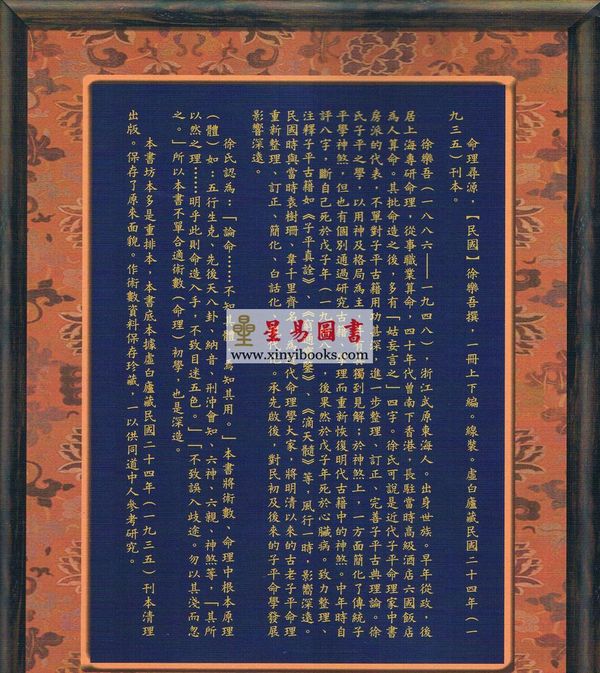 命理尋源,【民國】徐樂吾撰,一冊上下編。線裝。虛白廬藏民國二十四年(一
九三五)刊本。
徐樂吾(一八八六——一九四八),浙江武原東海人。出身世族。早年從政,後
居上海專研命理,從事職業算命,四十年代曾南下香港,長駐當時高級酒店六國飯店
為人算命。其批命造之後,多有「姑妄言之」四字。徐氏可說是近代子平命理家中書
房派的代表,不單對子平古籍用功甚深,進一步整理、訂正、完善子平古典理論。徐
氏子平之學,以用神及格局為主,有獨到見解;於神煞上,一方面簡化了傳統子
平學神煞,但也有個別通過研究古籍、理而重新恢復明代古籍中的神煞。中年時自
評八字,斷自己死於戊子年(一九八),後果然於戊子年死於心臟病。致力整理、
注釋子平古籍如《子平真詮》、《鑒》、《滴天髓》等,風行一時,影響深遠。
民國時與當時袁樹珊、韋千里齊名,代命理學大家,將明清以來的古老子平命理
重新整理、訂正、簡化、白話化、代。承先啟後,對民初及後來的子平命學發展
影響深遠。
徐氏認為:「論命……不知其體,焉知其用。」本書將術數、命理中根本原理
(體)如:五行生克、先後天八卦、納音、刑沖會知、六神、六親、神煞等,「其所
以然之理……明乎此則命造入手,不致目迷五色。」「不致誤入歧途。勿以其淺而忽
之。」所以本書不單合適術數(命理)初學,也是深造。
本書坊本多是重排本,本書底本據虛白廬藏民國二十四年(一九三五)刊本清理
出版。保存了原來面貌。作術數資料保存珍藏,一以供同道中人參考研究。
星易圖書
www.xinyibooks.com